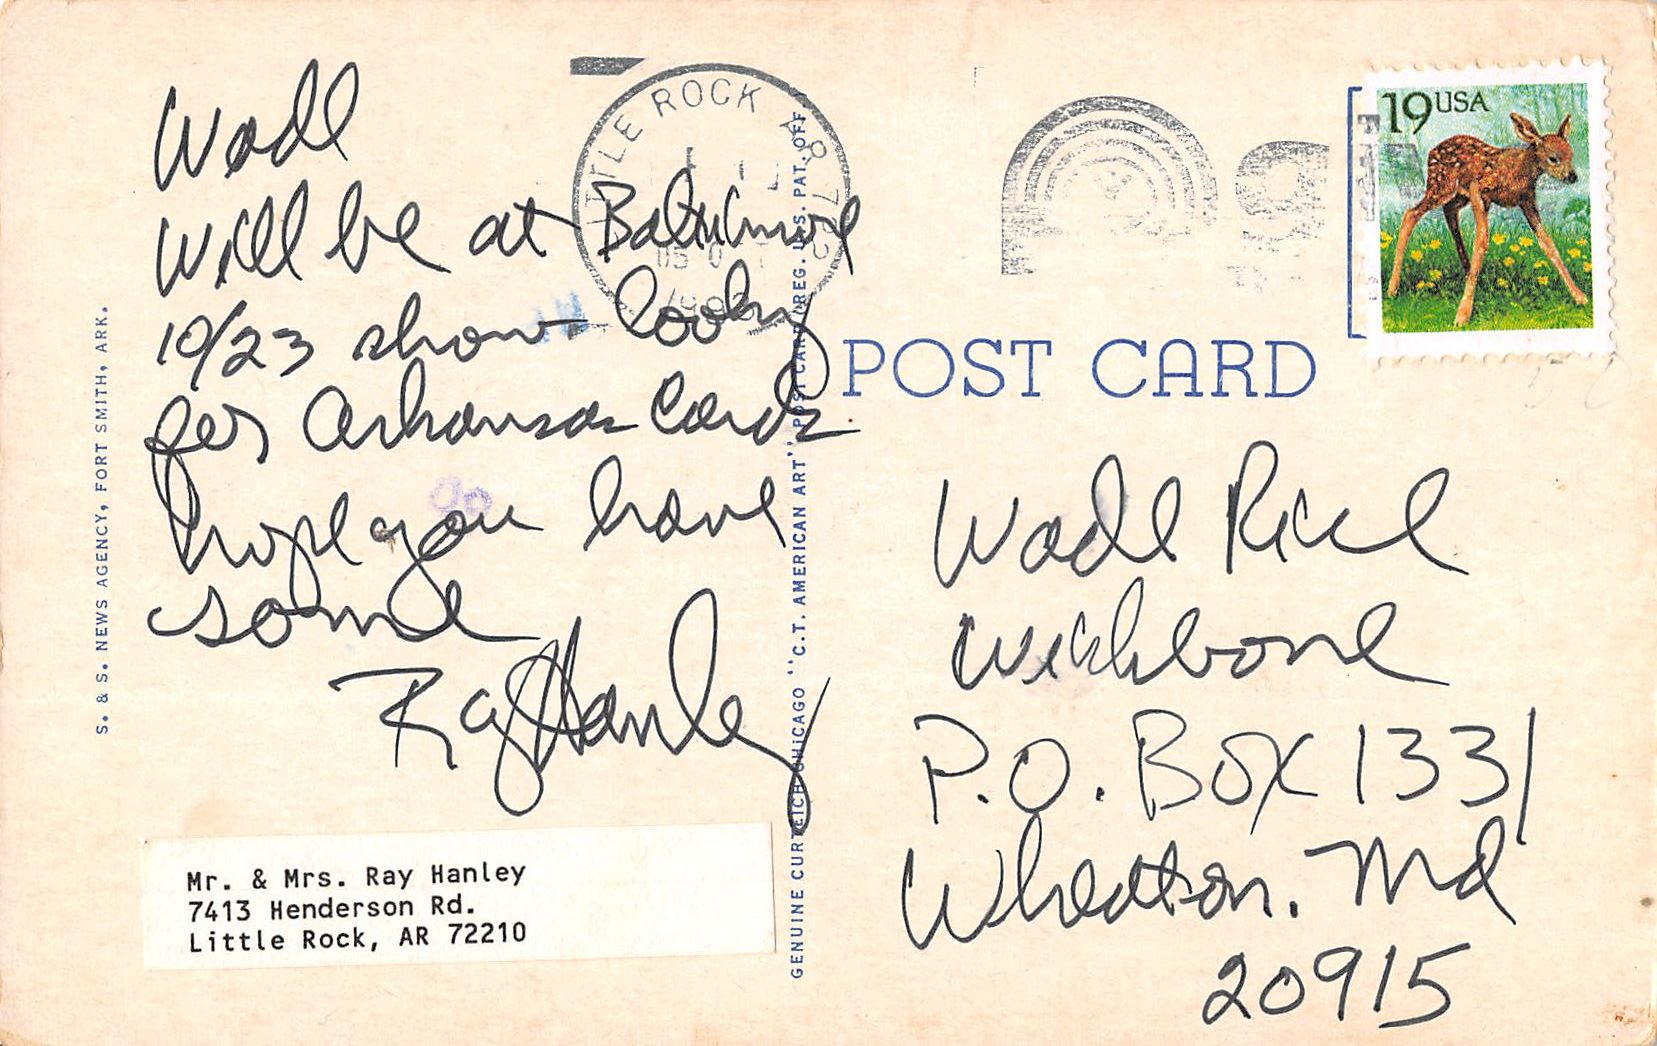 Wade
Will be at Baltimore
10/23 show. looking
for Arkansas Cards
hope you have
some
Ray Hanley
Mr. & Mrs. Ray Hanley
7413 Henderson Rd.
Little Rock, AR 72210
S. & S. NEWS AGENCY, FORT SMITH, ARK.
GENUINE CURTEICH-CHICAGO "C.T. AMERICAN ART" POST CARD (REG. U.S. PAT. OFF.
LITTLE ROCK AR 722
19 USA
POST CARD
Wade Rice
Wishbone
P.O. Box 1331
Wheaton. Md
20915